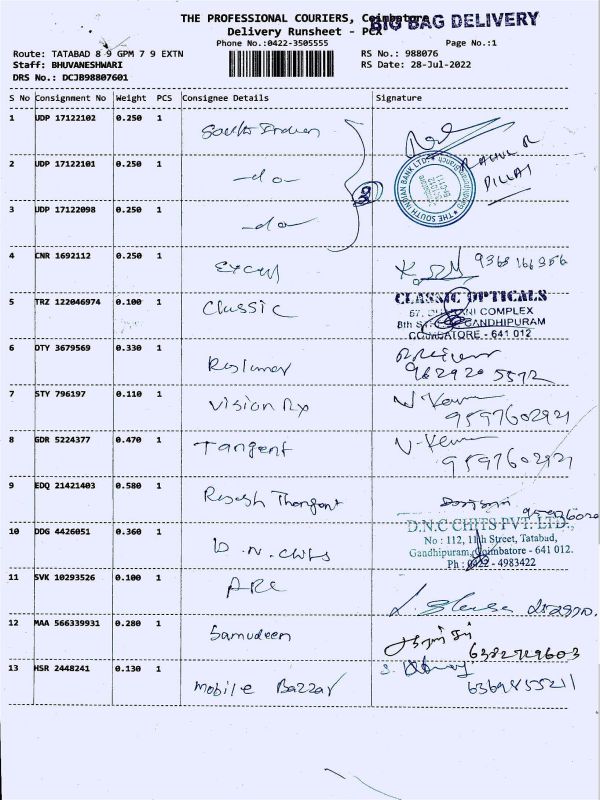 THE PROFESSIONAL COURIERS, Coimbatore
BIG BAG DELIVERY
Delivery Runsheet - PCX
Phone No.:0422-3505555
Page No.:1
Route: TATABAD 8 9 GPM 7 9 EXTN
RS No.: 988076
Staff: BHUVANESHWARI
RS Date: 28-Jul-2022
DRS No.: DCJB98807601
S No Consignment No Weight PCS Consignee Details Signature
1 UDP 17122102 0.250 1 South Indian
RAHUL R
PILLAI
THE SOUTH INDIAN BANK LTD
2 UDP 17122101 0.250 1 -do-
3 UDP 17122098 0.250 1 -do-
4 CNR 1692112 0.250 1 Excel
5 TRZ 122046974 0.100 1 Classic
CLASSIC OPTICALS
COMPLEX
GANDHIPURAM
COIMBATORE - 641 012
6 DTY 3679569 0.330 1
9629205572
7 STY 796197 0.110 1 Vision Rx
9597602921
8 GDR 5224377 0.470 1 Tangent
9597602921
9 EDQ 21421403 0.580 1
D.N.C CHITS PVT. LTD.,
No : 112, 11th Street, Tatabad,
Gandhipuram, Coimbatore - 641 012.
Ph : 0422 - 4983422
10 DDG 4426051 0.360 1 D.N. Chits
11 SVK 10293526 0.100 1 ARC
12 MAA 566339931 0.280 1 Samudeen
6382729603
13 HSR 2448241 0.130 1 Mobile Bazzar
6369855211